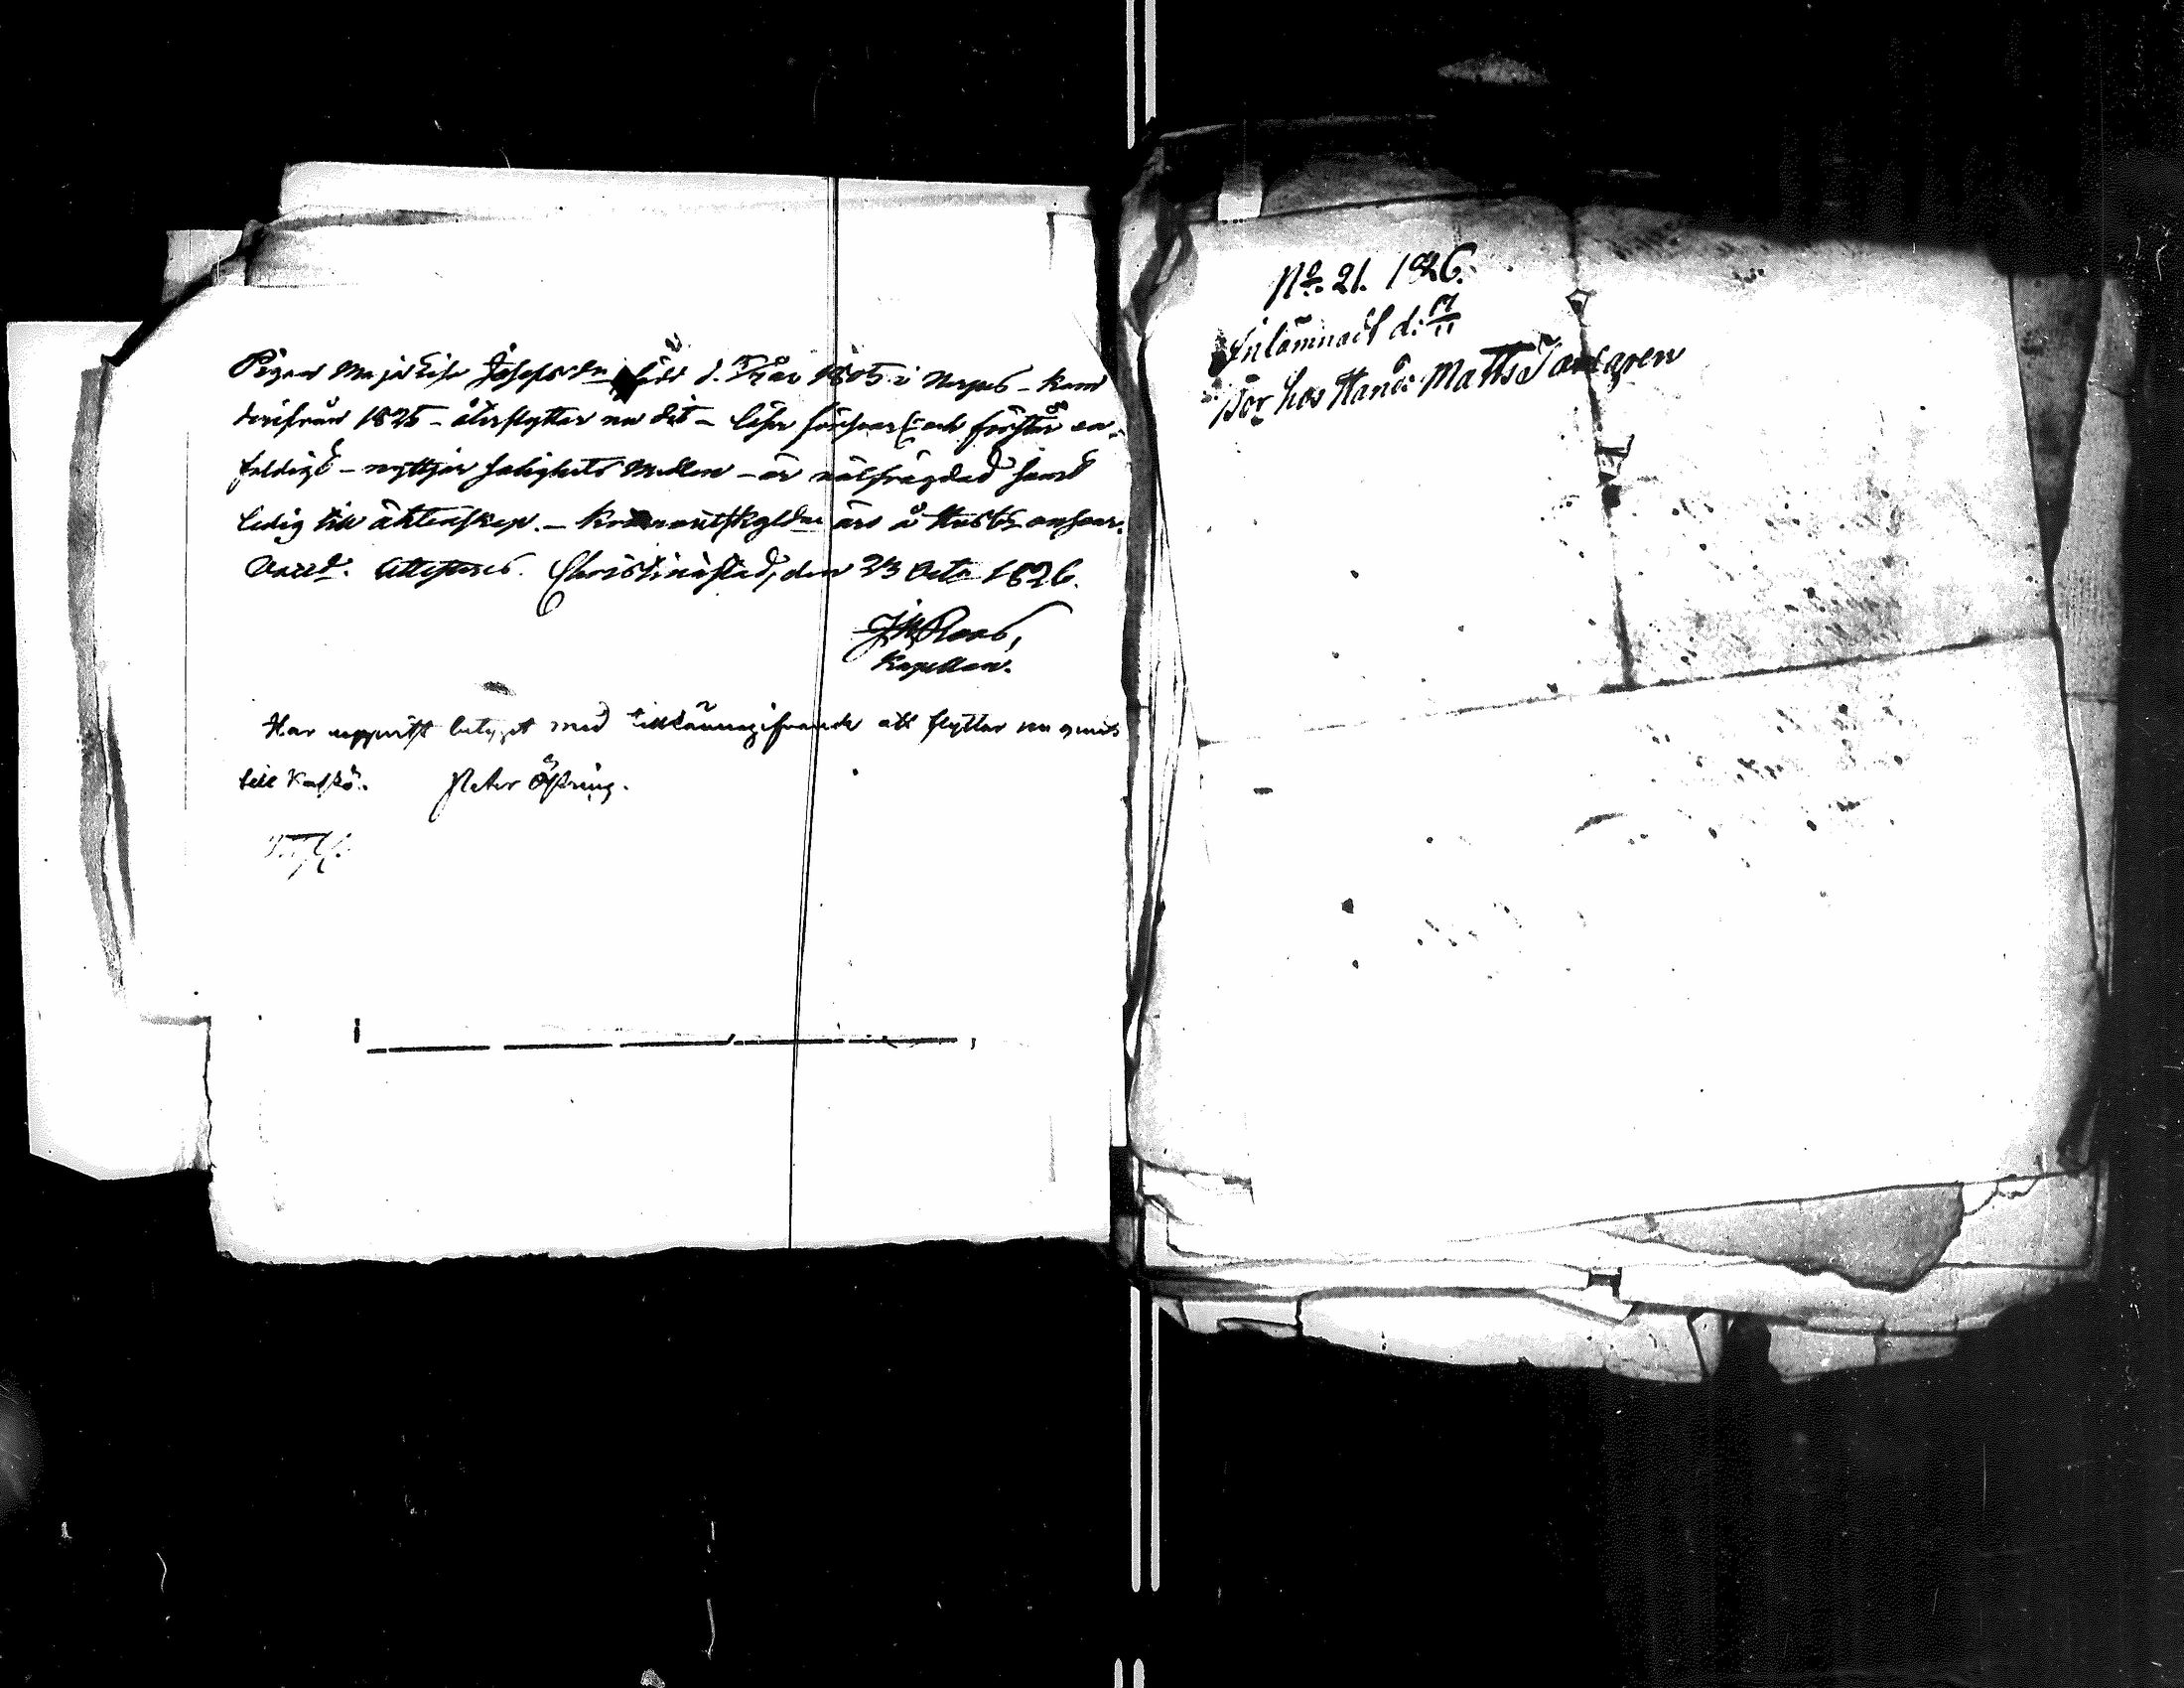 Pigan Maja Lisa Josephsdr född d. år 1805 i Nerpes – kom
derifrån 1825 – återflyttar nu dit – läser försvarl: och förstår en-
faldigt – nyttjar salighets Medlen – är välfrägdad samt
ledig till äktenskap. – Kronoutskyldne äro å
Attesteras. Christinæstad, den 23 Octo 1826.
Roos,
Kapellan.
Har uppvist betyget med tillkännagifvande att flyttar nu genast
till Kaskö. Peter Östring.
No. 21. 1826.
Inlämnadt d: 17/11
Bor hos Hand: Matts Tandgren